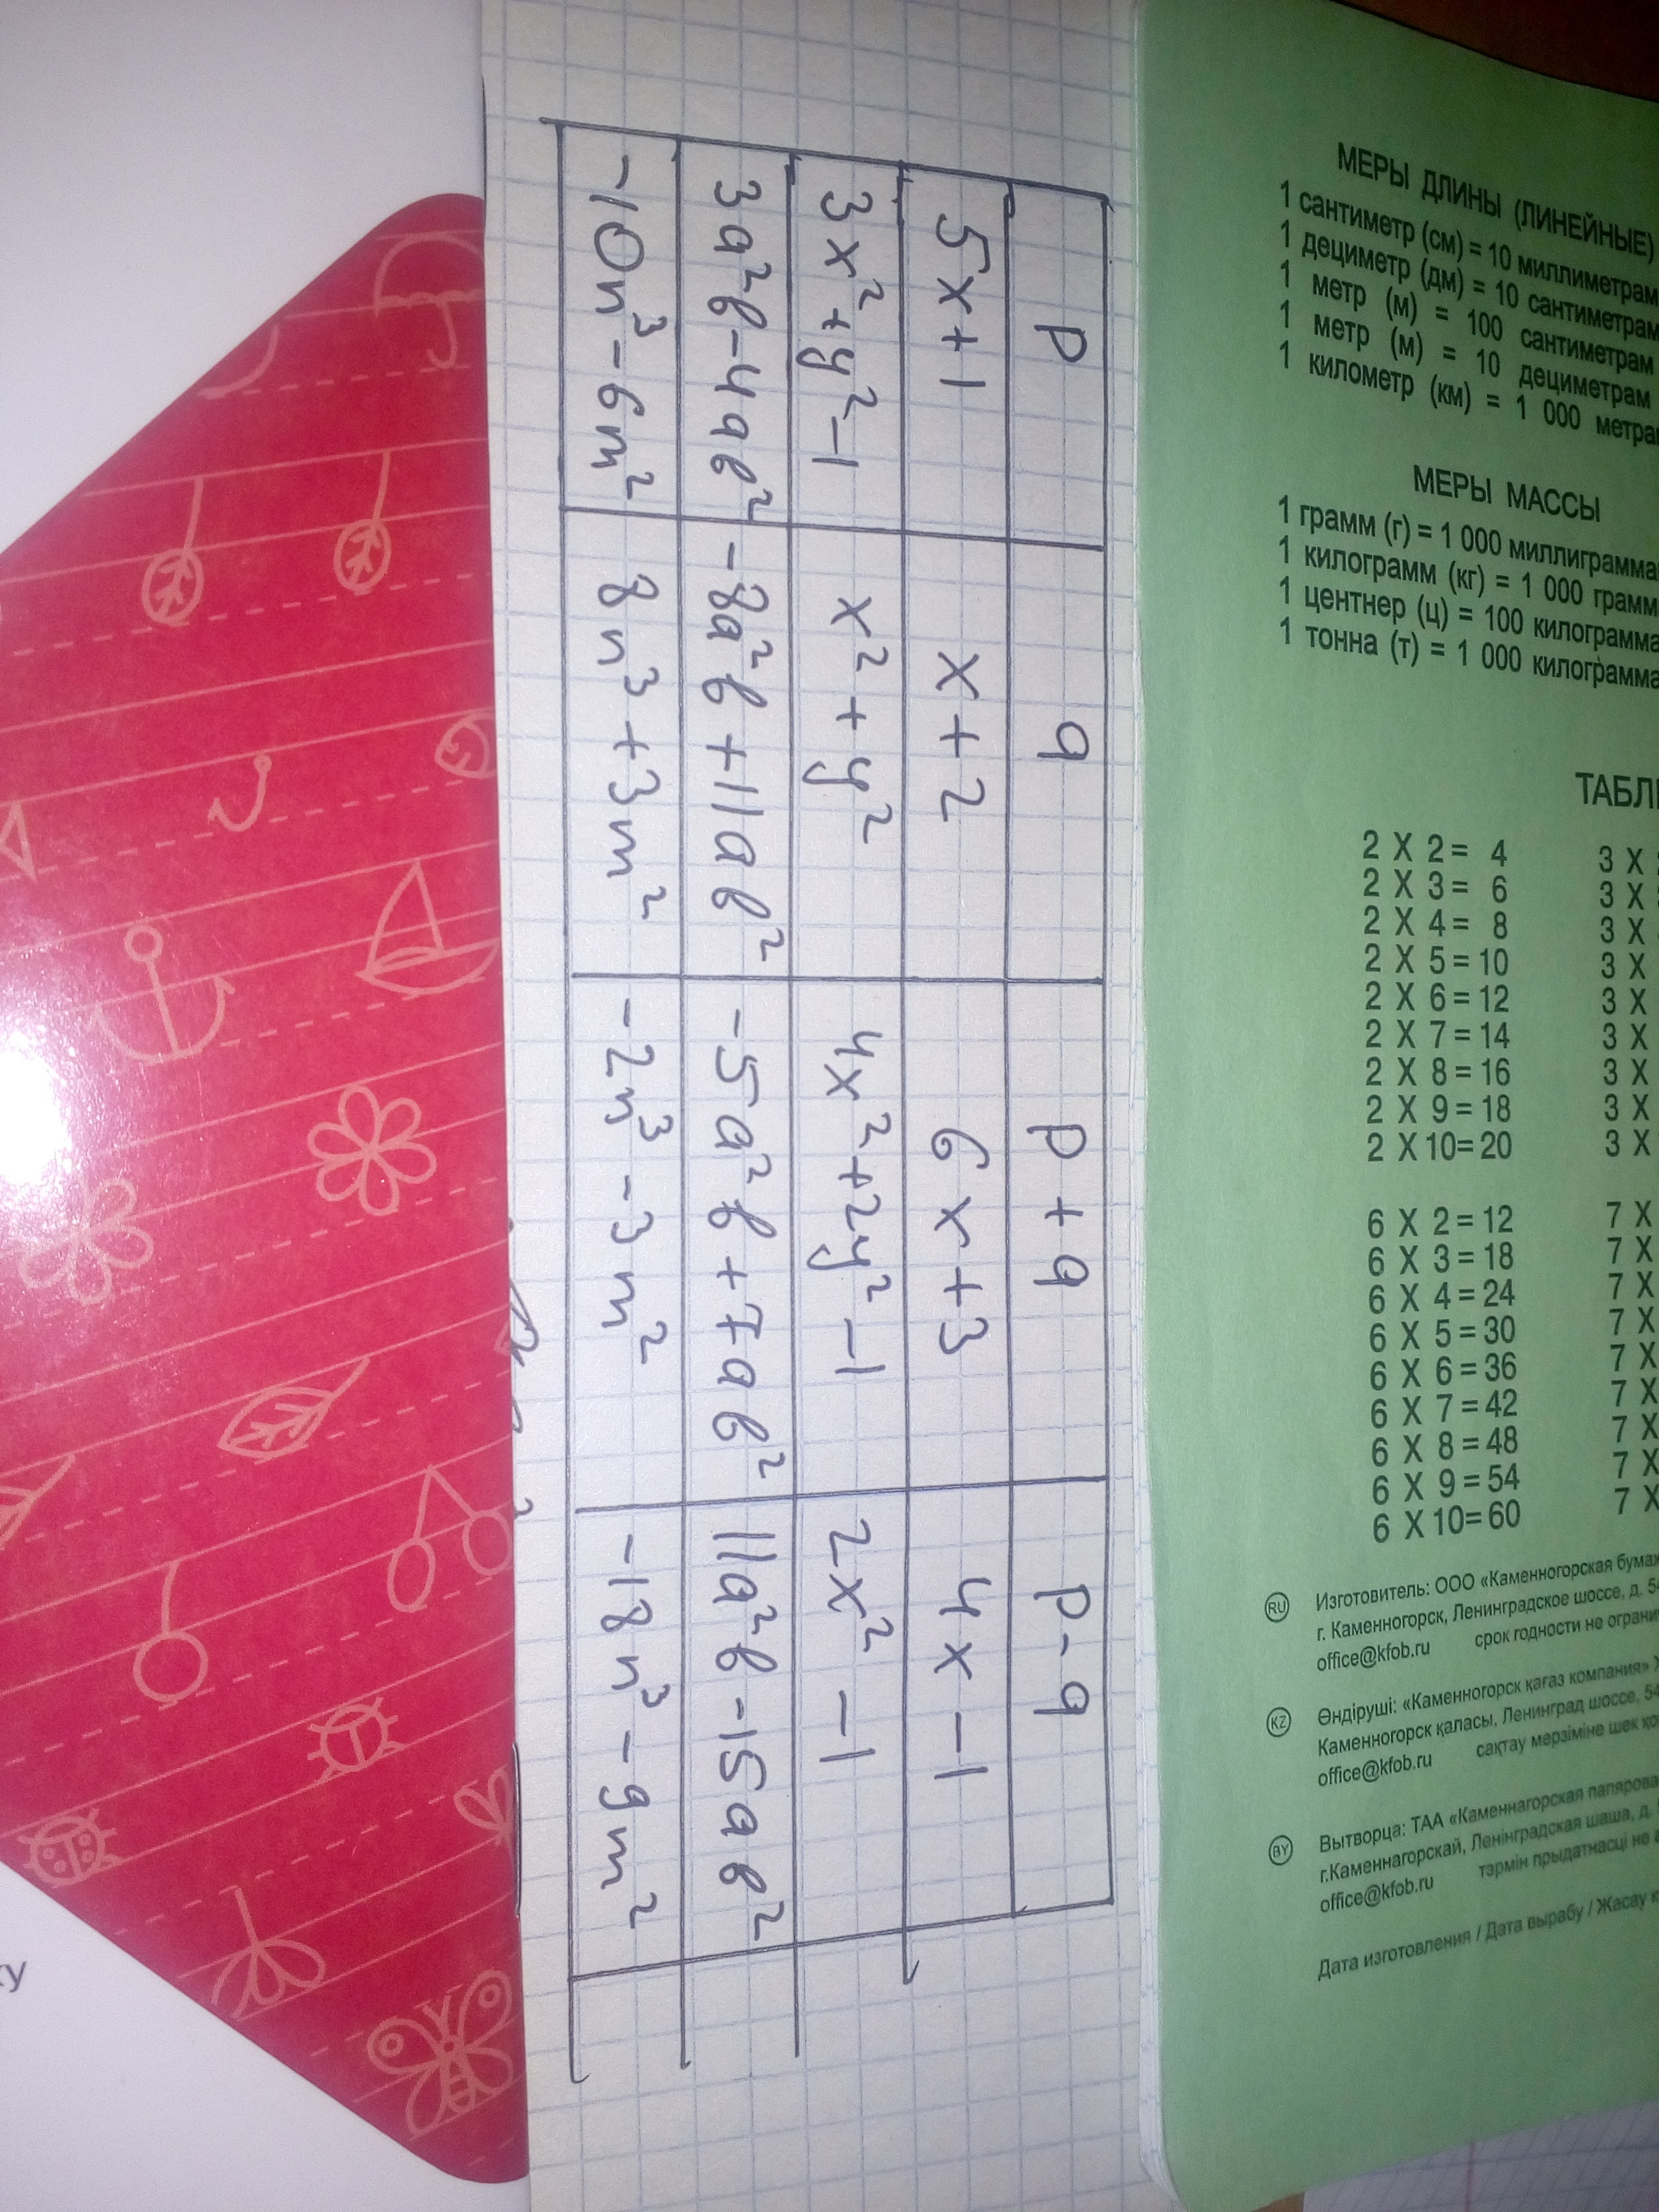 p q p+q p-q
5x+1 x+2 6x+3 4x-1
3x²+y²-1 x²+y² 4x²+2y²-1 2x²-1
3a²b-4ab² -8a²b+11ab² -5a²b+7ab² 11a²b-15ab²
-10n³-6m² 8n³+3m² -2n³-3m² -18n³-9m²
МЕРЫ ДЛИНЫ (ЛИНЕЙНЫЕ)
1 сантиметр (см) = 10 миллиметрам
1 дециметр (дм) = 10 сантиметрам
1 метр (м) = 100 сантиметрам
1 метр (м) = 10 дециметрам
1 километр (км) = 1 000 метра
МЕРЫ МАССЫ
1 грамм (г) = 1 000 миллиграмма
1 килограмм (кг) = 1 000 грамм
1 центнер (ц) = 100 килограмма
1 тонна (т) = 1 000 килограмма
ТАБЛ
2 X 2= 4 3 X
2 X 3= 6 3 X
2 X 4= 8 3 X
2 X 5=10 3 X
2 X 6=12 3 X
2 X 7=14 3 X
2 X 8=16 3 X
2 X 9=18 3 X
2 X 10=20 3 X
6 X 2=12 7 X
6 X 3=18 7 X
6 X 4=24 7 X
6 X 5=30 7 X
6 X 6=36 7 X
6 X 7=42 7 X
6 X 8=48 7 X
6 X 9=54 7 X
6 X 10=60
RU Изготовитель: ООО «Каменногорская бумаж
г. Каменногорск, Ленинградское шоссе, д. 5
office@kfob.ru срок годности не ограни
KZ Өндіруші: «Каменногорск қағаз компания»
Каменногорск қаласы, Ленинград шоссе, 54
office@kfob.ru сақтау мерзіміне шек қо
BY Вытворца: ТАА «Каменнагорская папярова
г.Каменнагорскай, Ленінградская шаша, д.
office@kfob.ru тэрмін прыдатнасці не
Дата изготовления / Дата вырабу / Жасау